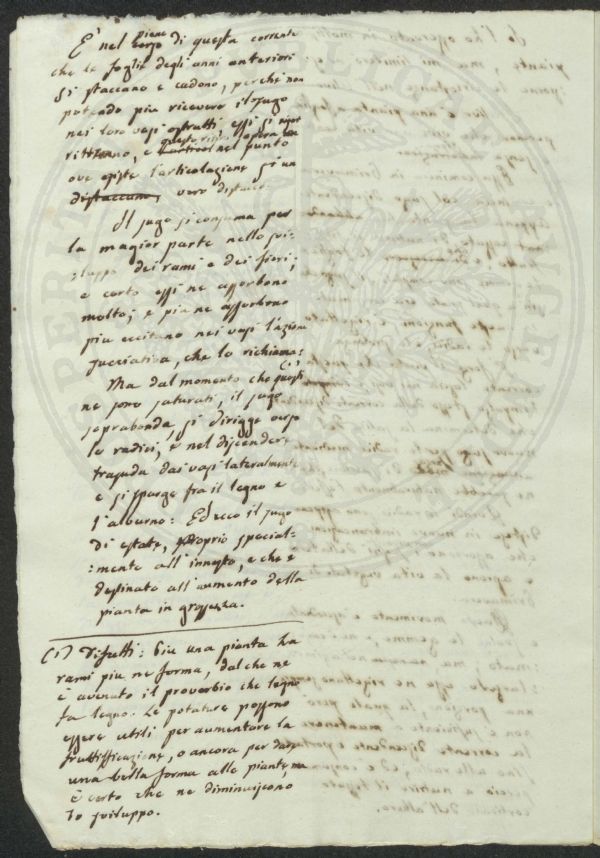 È nel pieno corso di questa corrente
che le foglie degli anni anteriori
si staccano e cadono, perchè non
potendo piu ricevere il sugo
nei loro vasi ostrutti essi si
e questo opera nel punto
ove esiste l'articolazione si un
distaccano, vero distacco.
Il sugo si consuma per
la magior parte nello svi-
:luppo dei rami e dei fiori;
e certo essi ne assorbono
molto; e piu ne assorbono
piu eccitano nei vasi l'azione
succiativa, che lo richiama:
Ma dal momento che questi (1)
ne sono saturati, il sugo
soprabonda, si dirigge verso
le radici, e nel discendere
trasuda dai vasi lateralmente
e si sparge fra il legno e
l'alburno: Ed ecco il sugo
di estate, proprio special-
:mente all'innesto, e che è
destinato all'aumento della
pianta in grossezza.
(1) Difatti: Piu una pianta ha
rami piu ne forma, dal che ne
è avenuto il proverbio che legno
fa legno. Le potature possono
essere utili per aumentare la
fruttifficazione, o ancora per dare
una bella forma alle piante, ma
è certo che ne diminuiscono
lo sviluppo.